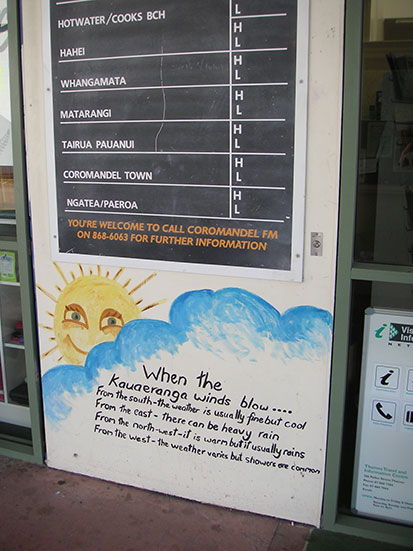 HOTWATER/COOKS BCH
L
HAHEI
H
L
WHANGAMATA
H
L
MATARANGI
H
L
TAIRUA PAUANUI
H
L
COROMANDEL TOWN
H
L
NGATEA/PAEROA
H
L
YOU'RE WELCOME TO CALL COROMANDEL FM
ON 868-6063 FOR FURTHER INFORMATION
When the
Kauaeranga winds blow....
From the south-the weather is usually fine but cool
From the east - there can be heavy rain
From the north-west-it is warm but it usually rains
From the west - the weather varies but showers are common
i
Thames Travel and
Information Centre